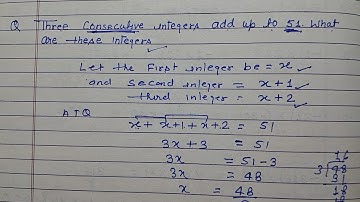 Q Three Consecutive integers add up to 51. What
are these integers
Let the First integer be = x
and second integer = x+1
third integer = x+2
ATQ
x + x+1 + x+2 = 51
3x + 3 = 51
3x = 51 - 3
3x = 48
x = 48
16
3 48
18